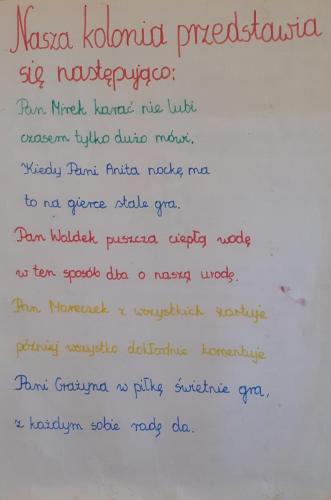 Nasza kolonia przedstawia
się następująco:
Pan Mirek karać nie lubi
czasem tylko dużo mówi.
Kiedy Pani Anita nockę ma
to na gierce stale gra.
Pan Waldek puszcza ciepłą wodę
w ten sposób dba o naszą urodę.
Pan Mareczek z wszystkich żartuje
później wszystko dokładnie komentuje
Pani Grażyna w piłkę świetnie gra,
z każdym sobie radę da.